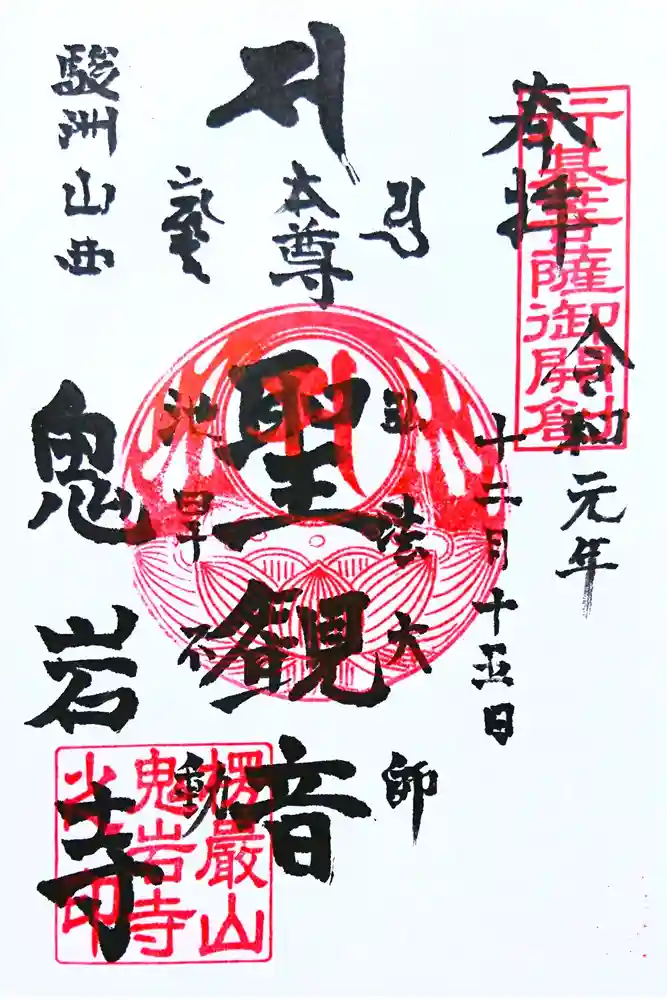 行基菩薩御開創
奉拝
令和元年
十二月十五日
弘法大師
本尊
聖観音
不動
駿洲山西
鬼岩寺
楞嚴山
鬼岩寺
印